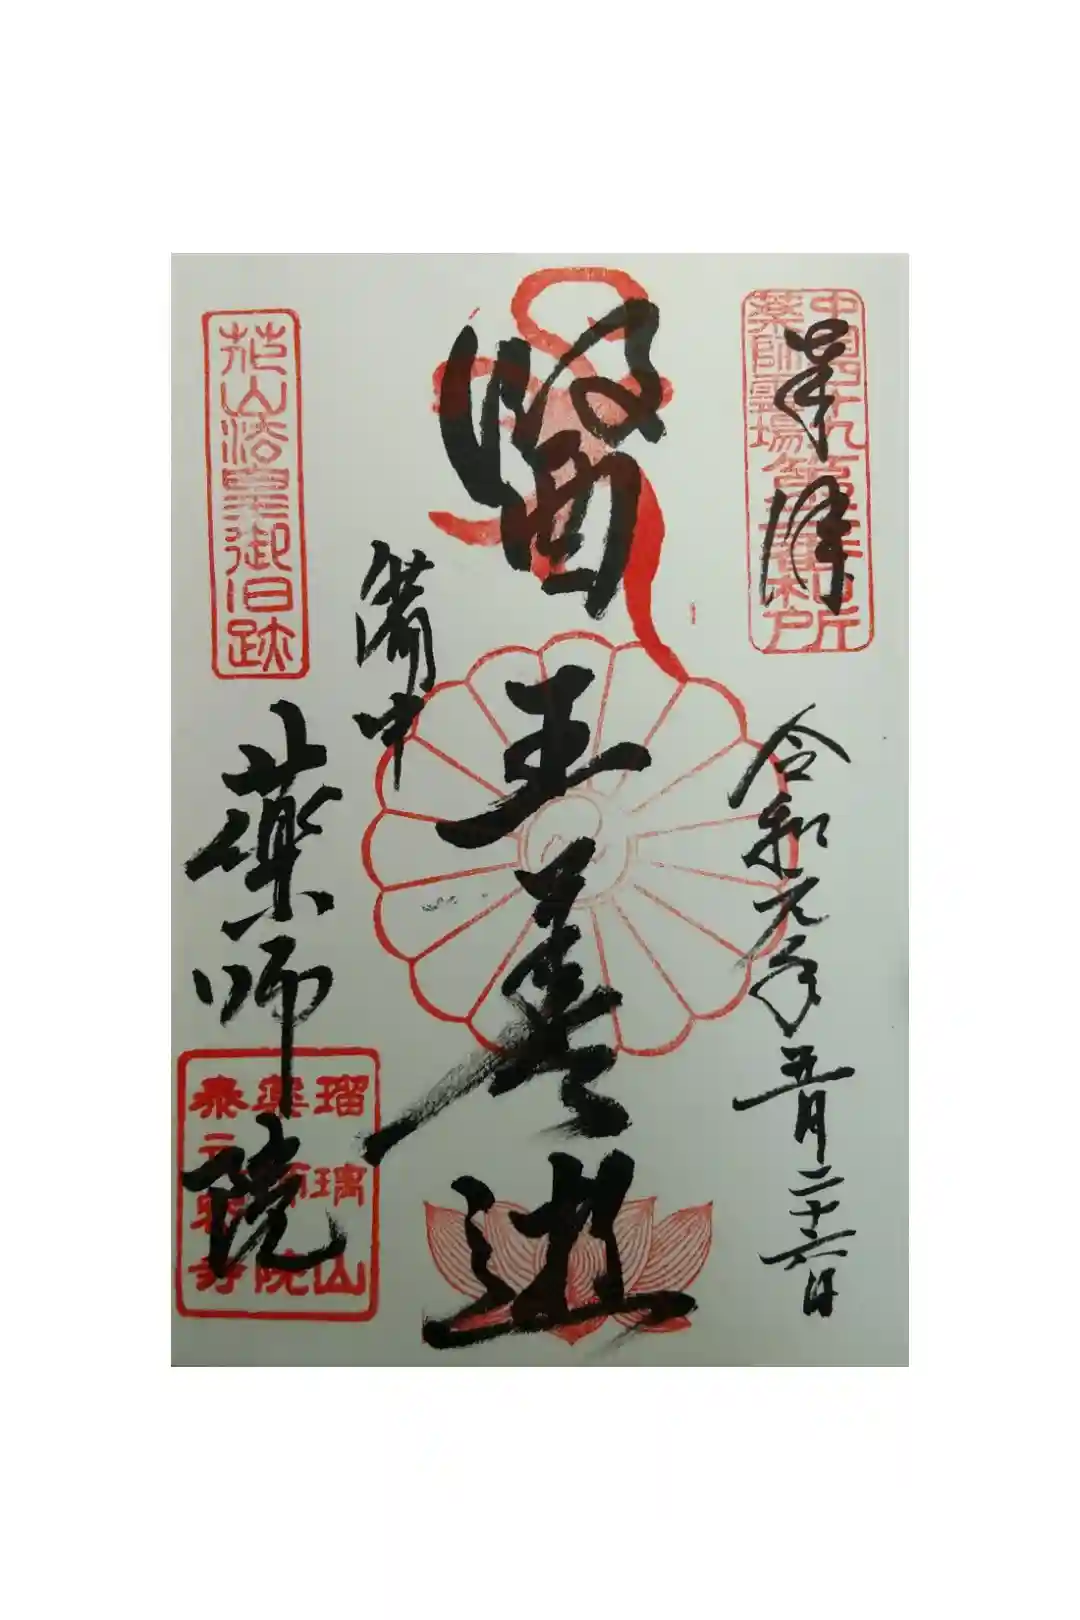 奉拝
中国四十九
薬師霊場
番札所
令和元年五月二十六日
醫王善逝
備中
花山法皇御旧跡
藥師院
瑠璃山
薬師院
泰立寺